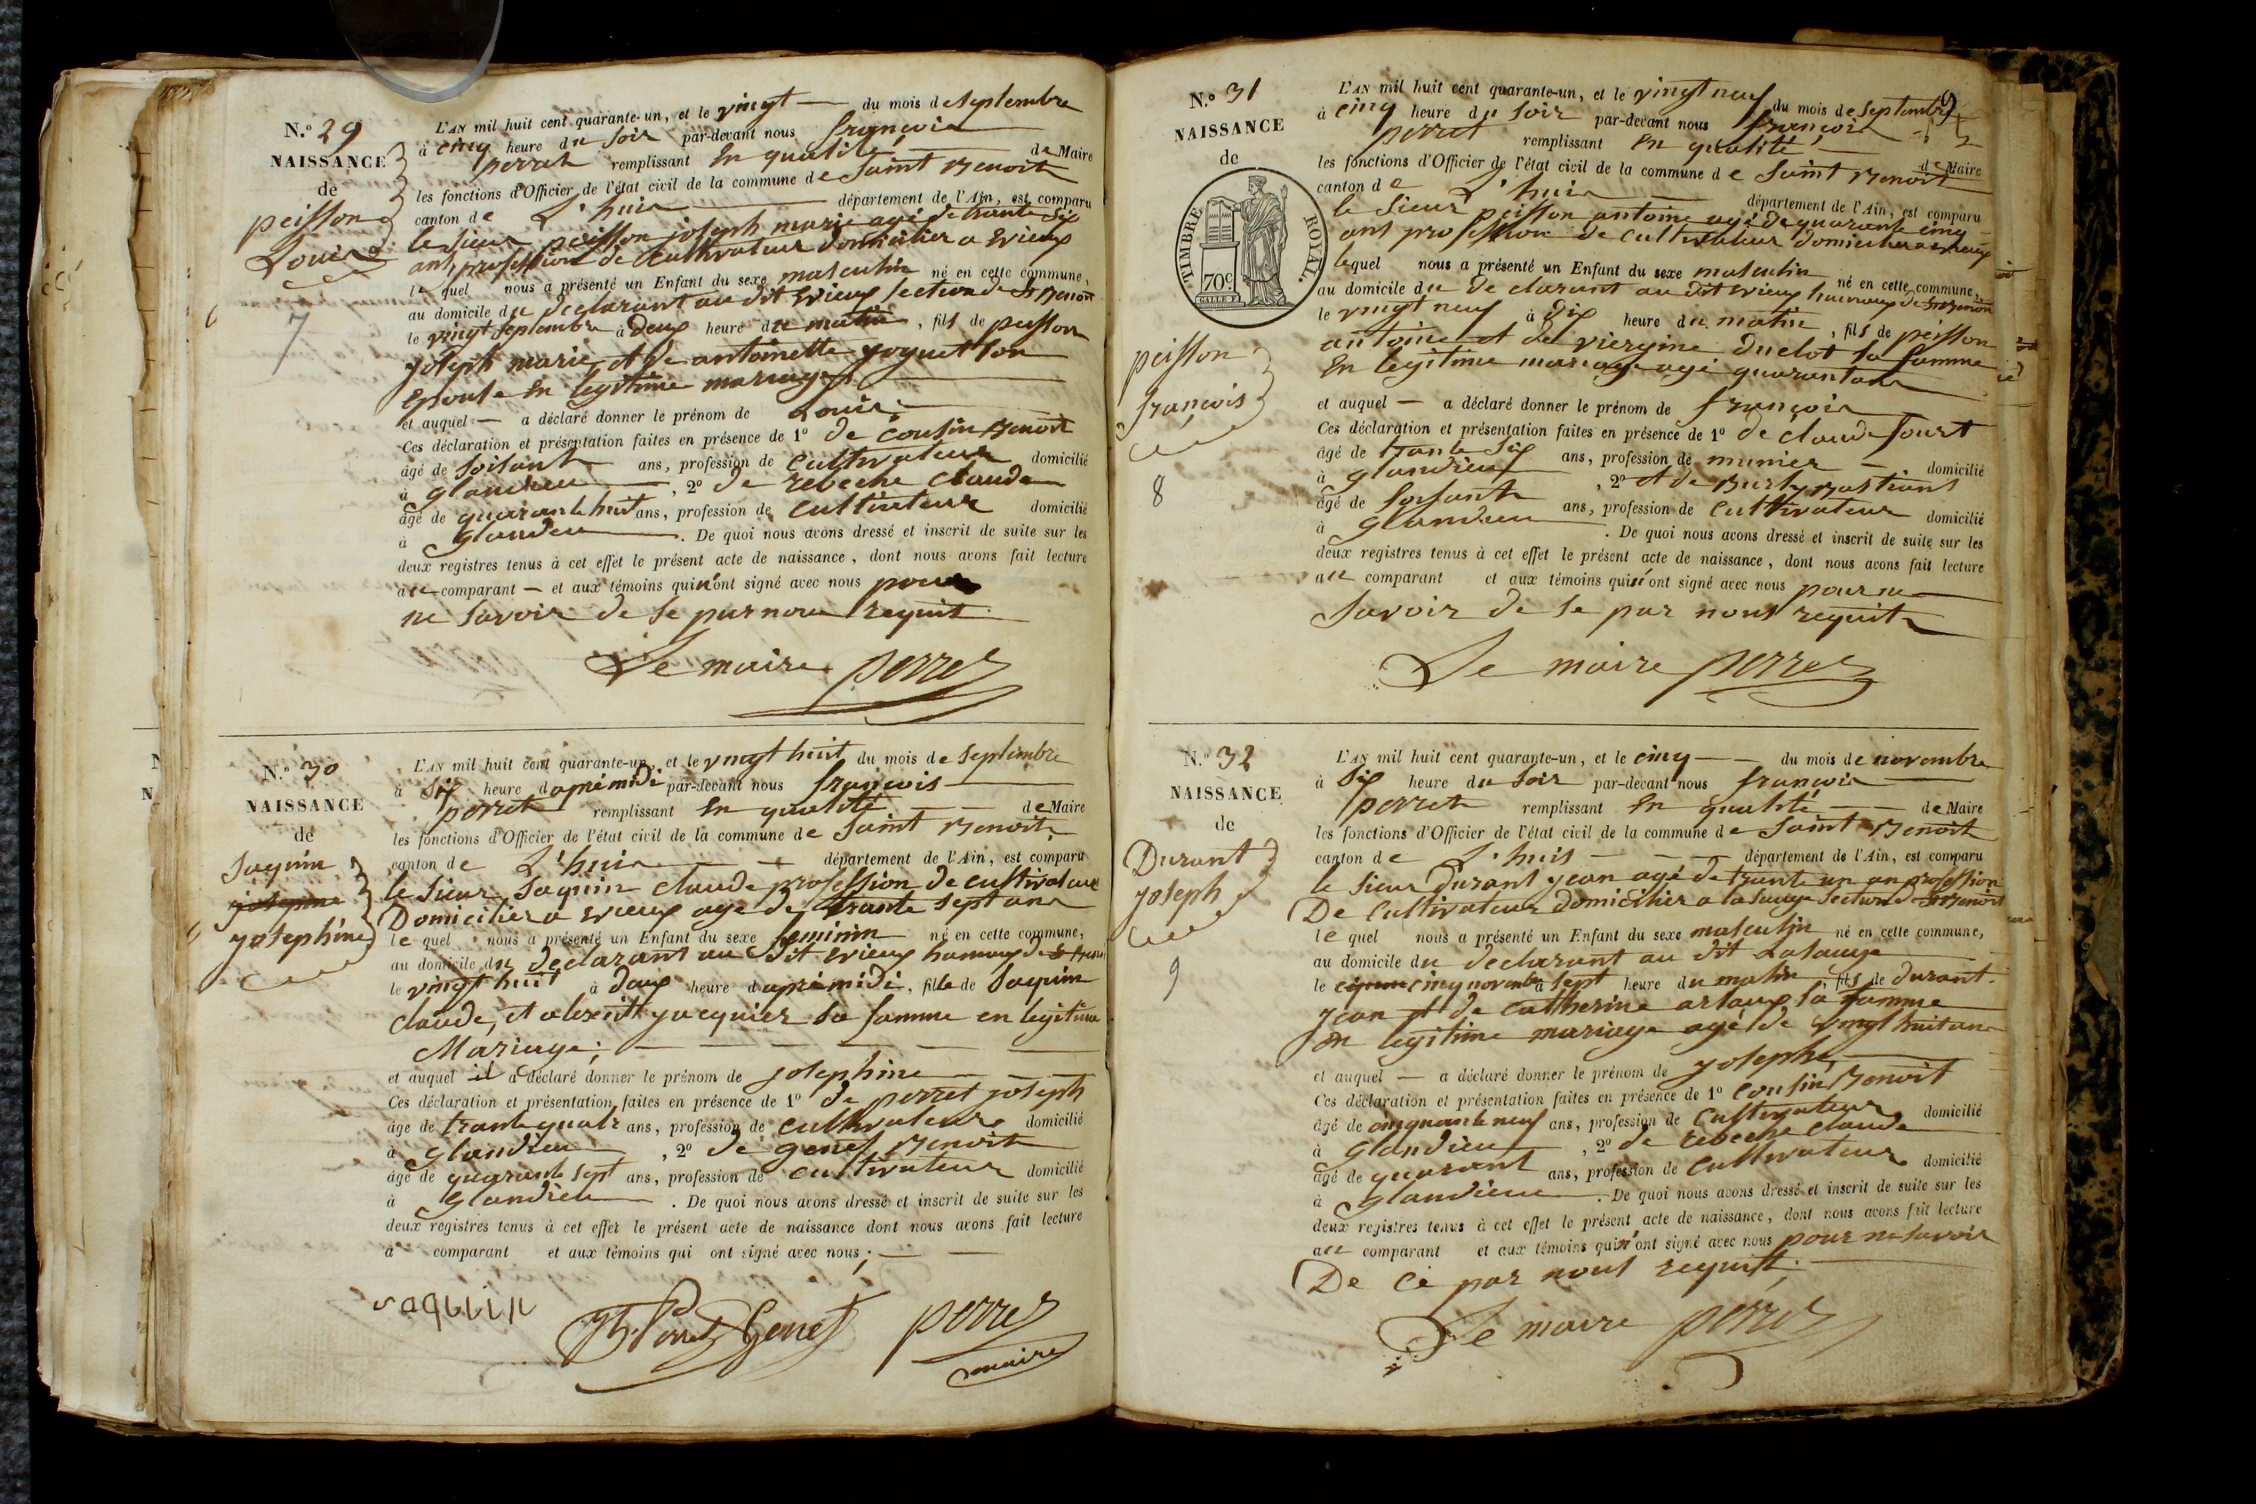 N.º 29
NAISSANCE
de
peisson
Louis
7
L'AN mil huit cent quarante-un, et le vingt — du mois de septembre
à cinq heure du soir par-devant nous françois
perret remplissant En qualité de Maire
les fonctions d'Officier de l'état civil de la commune de Saint Benoit
canton de L'huis département de l'Ain, est comparu
le sieur peisson joseph marie agé de trante six
ans, profession de cultivateur domicilier a Evieux
le quel nous a présenté un Enfant du sexe masculin né en cette commune,
au domicile du declarant au dit Evieux section de St Benoit
le vingt septembre à deux heure du matin, fils de peisson
joseph marie et de antoinette joguet son
Epouse En legitime mariage
et auquel — a déclaré donner le prénom de Louis
Ces déclaration et présentation faites en présence de 1º de cousin Benoit
âgé de soisante ans, profession de cultivateur domicilié
à glandieu, 2º de rebeche claude
âgé de quarante huit ans, profession de cultivateur domicilié
à glandieu. De quoi nous avons dressé et inscrit de suite sur les
deux registres tenus à cet effet le présent acte de naissance, dont nous avons fait lecture
au comparant — et aux témoins qui n'ont signé avec nous pour
ne savoir de se par nous requit
Le maire perret
N.º 30
NAISSANCE
de
Saquin
josephine
L'AN mil huit cent quarante-un, et le vingt huit du mois de septembre
à six heure d aprémidi par-devant nous françois
perret remplissant En qualité de Maire
les fonctions d'Officier de l'état civil de la commune de Saint Benoit
canton de L'huis département de l'Ain, est comparu
le sieur Saquin claude profession de cultivateur
Domicilier a Evieux agé de trante sept ans
le quel nous a présenté un Enfant du sexe feminin né en cette commune,
au domicile du declarant au dit Evieux hameau de St Benoit
le vingt huit à deux heure d aprémidi, fille de Saquin
claude, et jacquier sa famme en legitime
Mariage;
et auquel il a déclaré donner le prénom de josephine
Ces déclaration et présentation faites en présence de 1º de perret joseph
âge de trante quatr ans, profession de cultivateur domicilié
à glandieu, 2º de genet Benoit
âgé de quarante sept ans, profession de cultivateur domicilié
à glandieu. De quoi nous avons dressé et inscrit de suite sur les
deux registres tenus à cet effet le présent acte de naissance dont nous avons fait lecture
a comparant et aux témoins qui ont signé avec nous;
saquin Jh Perret Genet perret
maire
N.º 31
NAISSANCE
de
TIMBRE ROYAL.
70 c
peisson
françois
8
9
L'AN mil huit cent quarante-un, et le vingt neuf du mois de septembre
à cinq heure du soir par-devant nous françois
perret remplissant En qualité de Maire
les fonctions d'Officier de l'état civil de la commune de Saint Benoit
canton de L'huis département de l'Ain, est comparu
le sieur peisson antoine agé de quarante cinq
ans profession de cultivateur domicilier a Evieux
lequel nous a présenté un Enfant du sexe masculin né en cette commune,
au domicile du declarant au dit Evieux hameau de St Benoit
le vingt neuf à dix heure du matin, fils de peisson
antoine et de viergine duclot sa famme
En legitime mariage agé quarantans
et auquel — a déclaré donner le prénom de françois
Ces déclaration et présentation faites en présence de 1º de claude
âgé de trante six ans, profession de munier domicilié
à glandieux, 2º et de
âgé de soisante ans, profession de cultivateur domicilié
à glandieu. De quoi nous avons dressé et inscrit de suite sur les
deux registres tenus à cet effet le présent acte de naissance, dont nous avons fait lecture
au comparant et aux témoins qui n'ont signé avec nous pour ne
savoir de se par nous requit
Le maire perret
N.º 32
NAISSANCE
de
Durant
joseph
9
L'AN mil huit cent quarante-un, et le cinq — du mois de novembre
à six heure du soir par-devant nous françois
perret remplissant En qualité de Maire
les fonctions d'Officier de l'état civil de la commune de Saint Benoit
canton de L'huis département de l'Ain, est comparu
le sieur durant jean agé de trante un an profession
De cultivateur domicilier a section de St Benoit
le quel nous a présenté un Enfant du sexe masculin né en cette commune,
au domicile du declarant au dit
le cinq novembre à sept heure du matin, fils de durant
jean et de catherine sa famme
En legitime mariage agé de vingt huit ans
et auquel — a déclaré donner le prénom de josephe,
Ces déclaration et présentation faites en présence de 1º cousin Benoit
âgé de cinquante neuf ans, profession de cultivateur domicilié
à glandieu, 2º de rebeche claude
âgé de quarant ans, profession de cultivateur domicilié
à glandieu. De quoi nous avons dressé et inscrit de suite sur les
deux registres tenus à cet effet le présent acte de naissance, dont nous avons fait lecture
au comparant et aux témoins qui n'ont signé avec nous pour ne savoir
De ce par nous requist;
Le maire perret